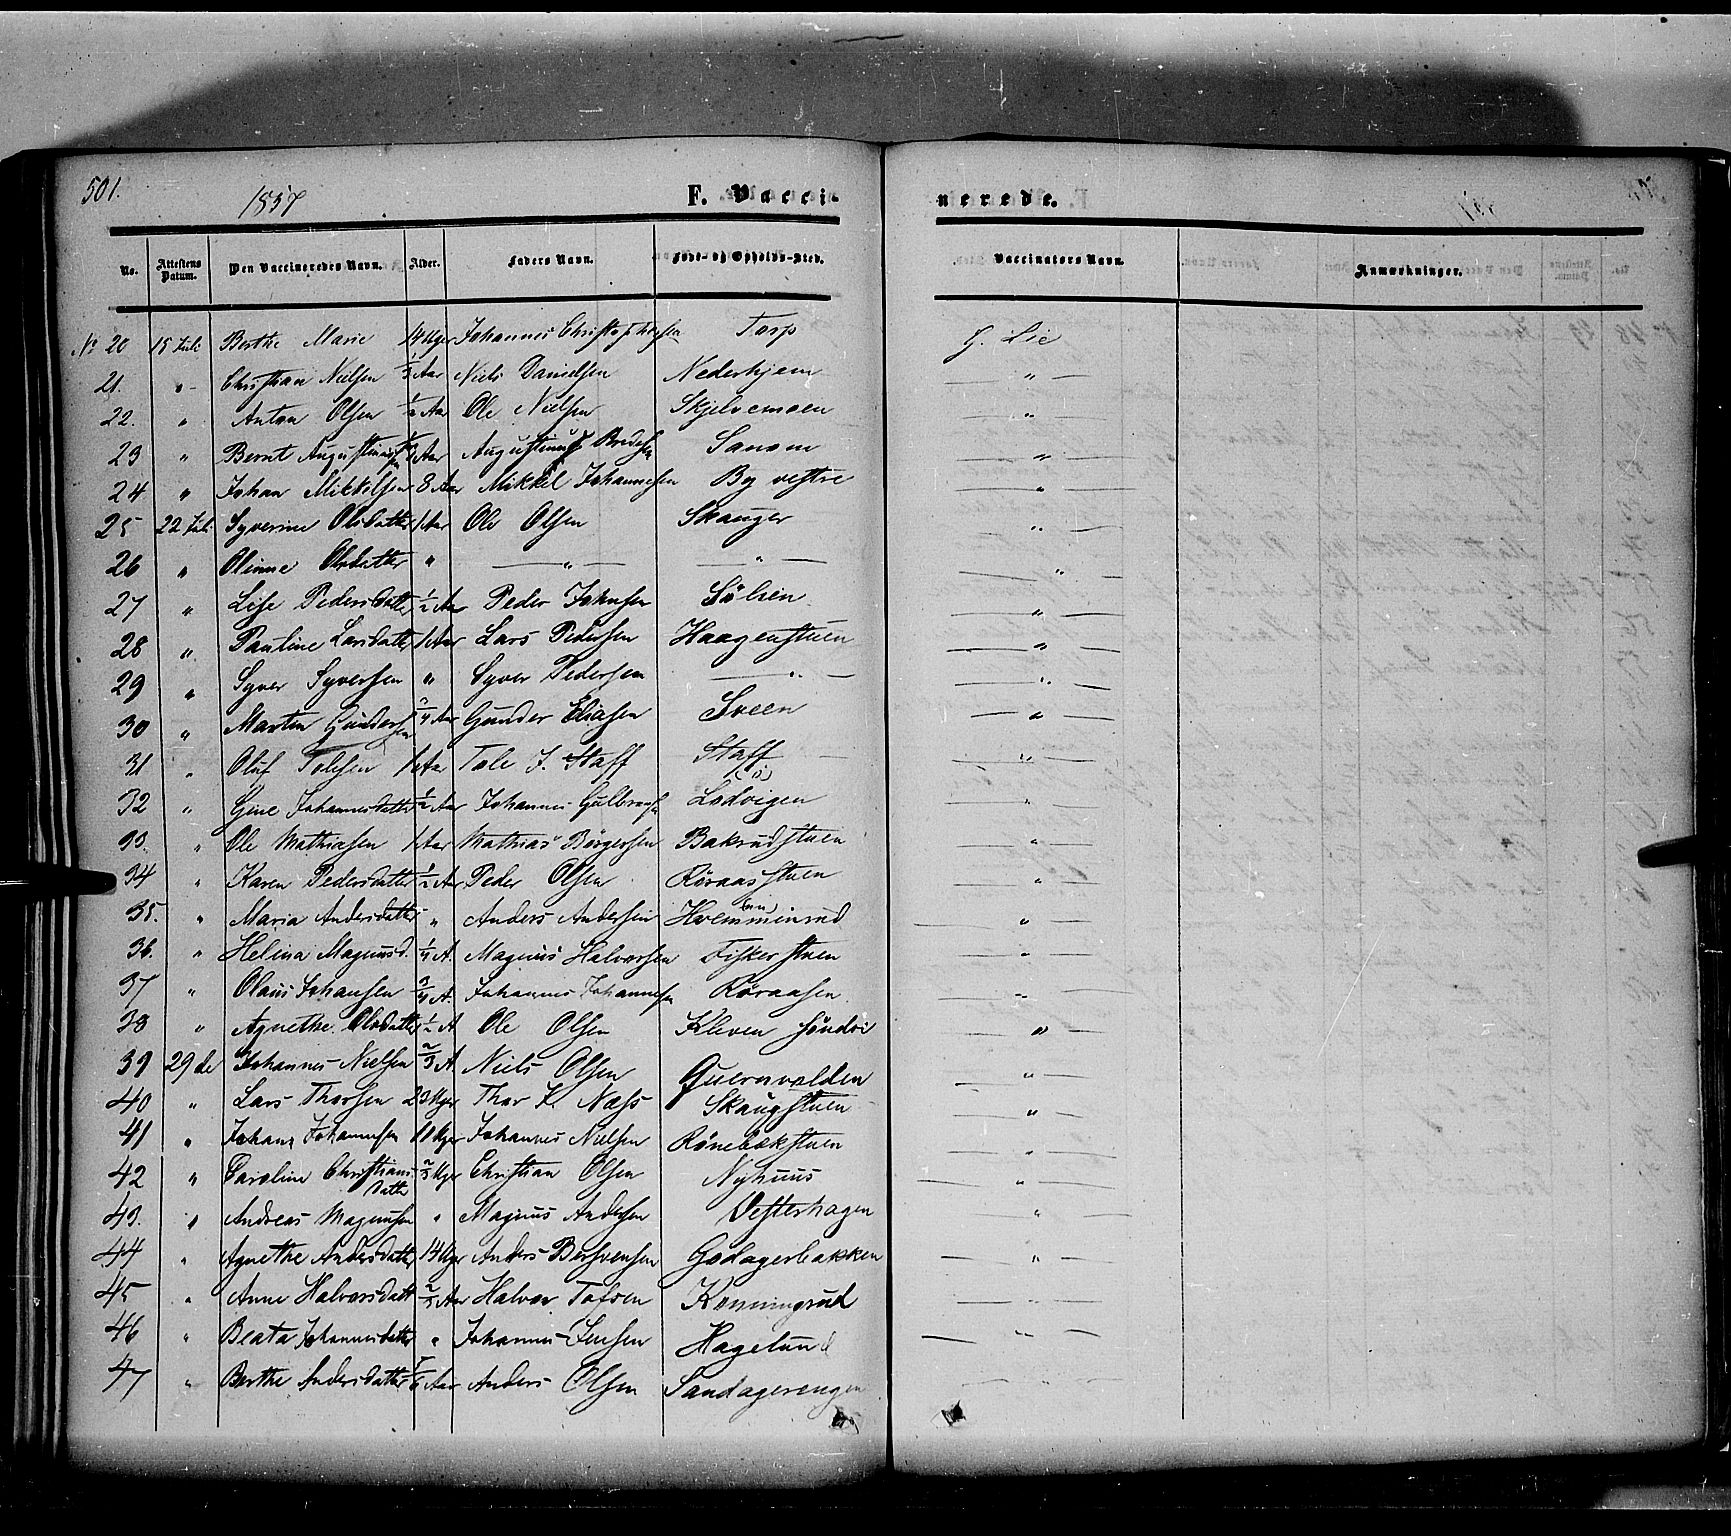 501.
1857
F. Vacci-
nerede.
No. Attestens Datum. Den Vaccineredes Navn. Alder. Faders Navn. Føde- og Opholds-Sted. Vaccinators Navn. Anmærkninger.
No 20 15 Juli Berthe Marie 14 Uger Johannes Christophersen Torp J. Lie
21. " Christian Nielsen 1/3 Aar Niels Danielsen Nederhjem — " —
22. " Anton Olsen 1/2 Aar Ole Nielsen Skjelvemoen "
23 " Bernt Augustinus Augustinus Bredesen Sanom — " —
24 " Johan Mikkelsen 8 Aar Mikkel Johannesen By vestre — " —
25 22 Juli Syverine Olsdatter 1 Aar Ole Olsen Skauger "
26 " Olinne Olsdatter " — " — — " — — " —
27 " Lise Pedersdatter 1/2 Aar Peder Johnsen Sölsen — " —
28 " Pauline Larsdatter 1 Aar Lars Pedersen Haagenstuen — " —
29 " Syver Syversen " Syver Pedersen — " — — " —
30 " Marten Gundersen 3/4 Aar Gunder Eliasen Sveen — " —
31 " Oluf Tolesen 1 Aar Tole J. Staff Staff — " —
32 " Gine Johannesdatter 1/2 Aar Johannes Gulbransen Lodvigen "
33. " Ole Mathiasen 1 Aar Mathias Börgersen Bakrudstuen — " —
34 " Karen Pedersdatter 1/2 Aar Peder Olsen Röraasstuen — " —
35. " Maria Andersdatter " Anders Andersen Hvemminrud — " —
36. " Helena Magnusd. 1/4 A. Magnus Halvorsen Fiskerstuen — " —
37 " Olaus Johansen 3/4 A. Johannes Johannesen Röraasen — " —
38 " Agnethe Olsdatter 1/2 A Ole Olsen Kleven söndre — " —
39 29 de Johannes Nielsen 2/3 A Niels Olsen Quernvolden — " —
40 " Lars Thorsen 23 Uger Thor K. Næss Skaugstuen — " —
41 " Johan Johannesen 11 Uger Johannes Nielsen Rönebækstuen — " —
42 " Caroline Christiansdatter Uger Christian Olsen Nyhuus — " —
43. " Andreas Magnusen " Magnus Andersen Vesterhagen — " —
44 " Agnethe Andersdatter 14 Uger Anders Bersvensen Godagerbakken — " —
45 " Anne Halvorsdatt Aar Halvor Tofsen Konningsrud — " —
46 " Beata Johannesdatter " Johannes Jensen Hagelund — " —
47 " Berthe Andersdatter Aar Anders Olsen Sandagerengen — " —